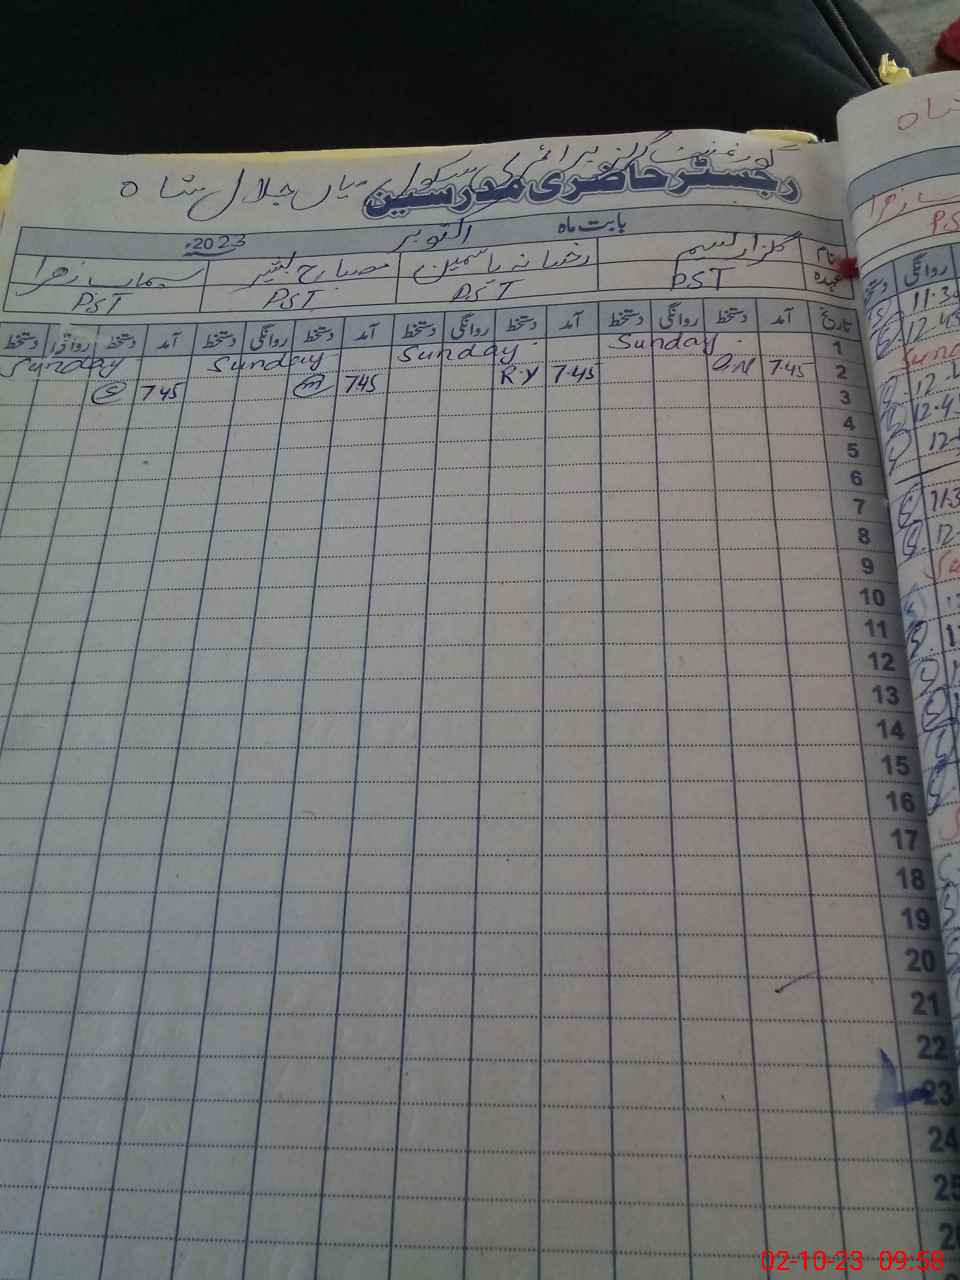 گورنمنٹ گرلز پرائمری سکول میاں جلال شاہ
رجسٹر حاضری مدرسین
بابت ماہ اکتوبر 2023ء
نام گلزار نسیم رخسانہ یاسمین مصباح بشیر سیماب زہرا
عہدہ PST PST PST PST
تاریخ آمد دستخط روانگی دستخط آمد دستخط روانگی دستخط آمد دستخط روانگی دستخط آمد دستخط روانگی دستخط
1 Sunday Sunday Sunday Sunday
2 7:45 G.N 7:45 R.Y 7:45 m 7:45 S
3
4
5
6
7
8
9
10
11
12
13
14
15
16
17
18
19
20
21
22
23
24
25
شاہ
زہرا
PS
روانگی دستخط
11:30
12:45
12:4
12:4
02-10-23 09:58